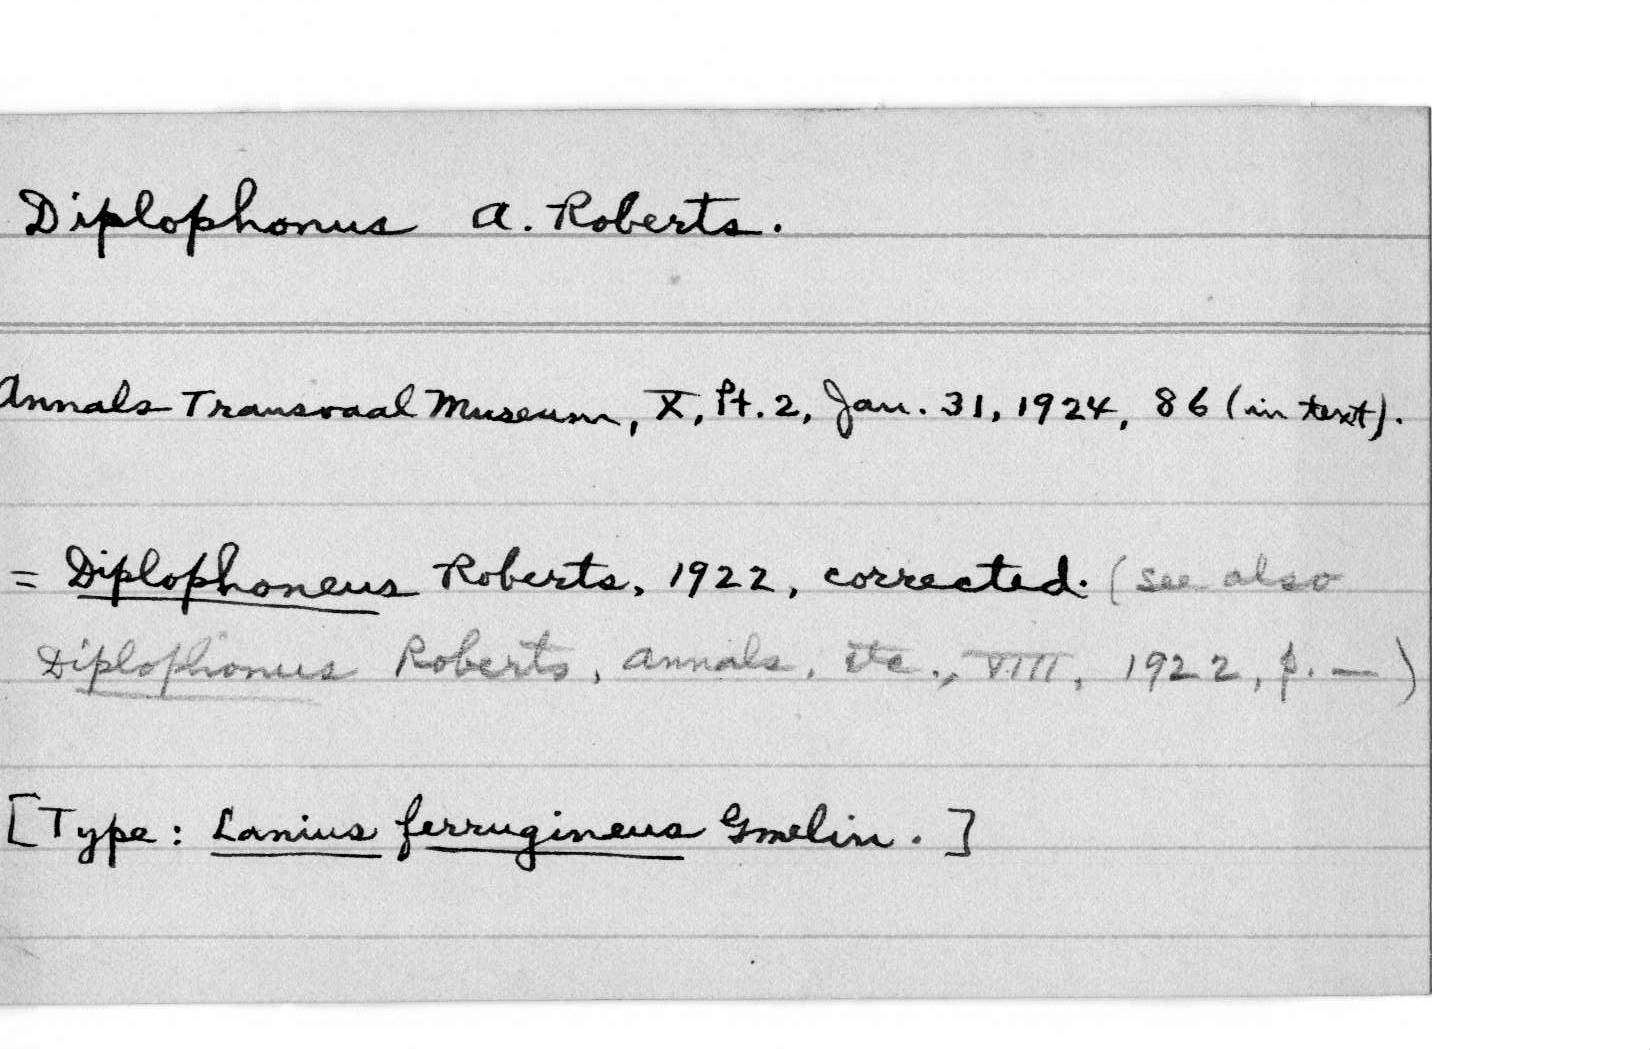 Diplophonus A. Roberts.
Annals Transvaal Museum, X, Pt. 2, Jan. 31, 1924, 86 (in text).
= Diplophoneus Roberts, 1922, corrected. (see also
Diplophonus Roberts, Annals, etc., VIII, 1922, p. —)
[Type: Lanius ferrugineus Gmelin.]